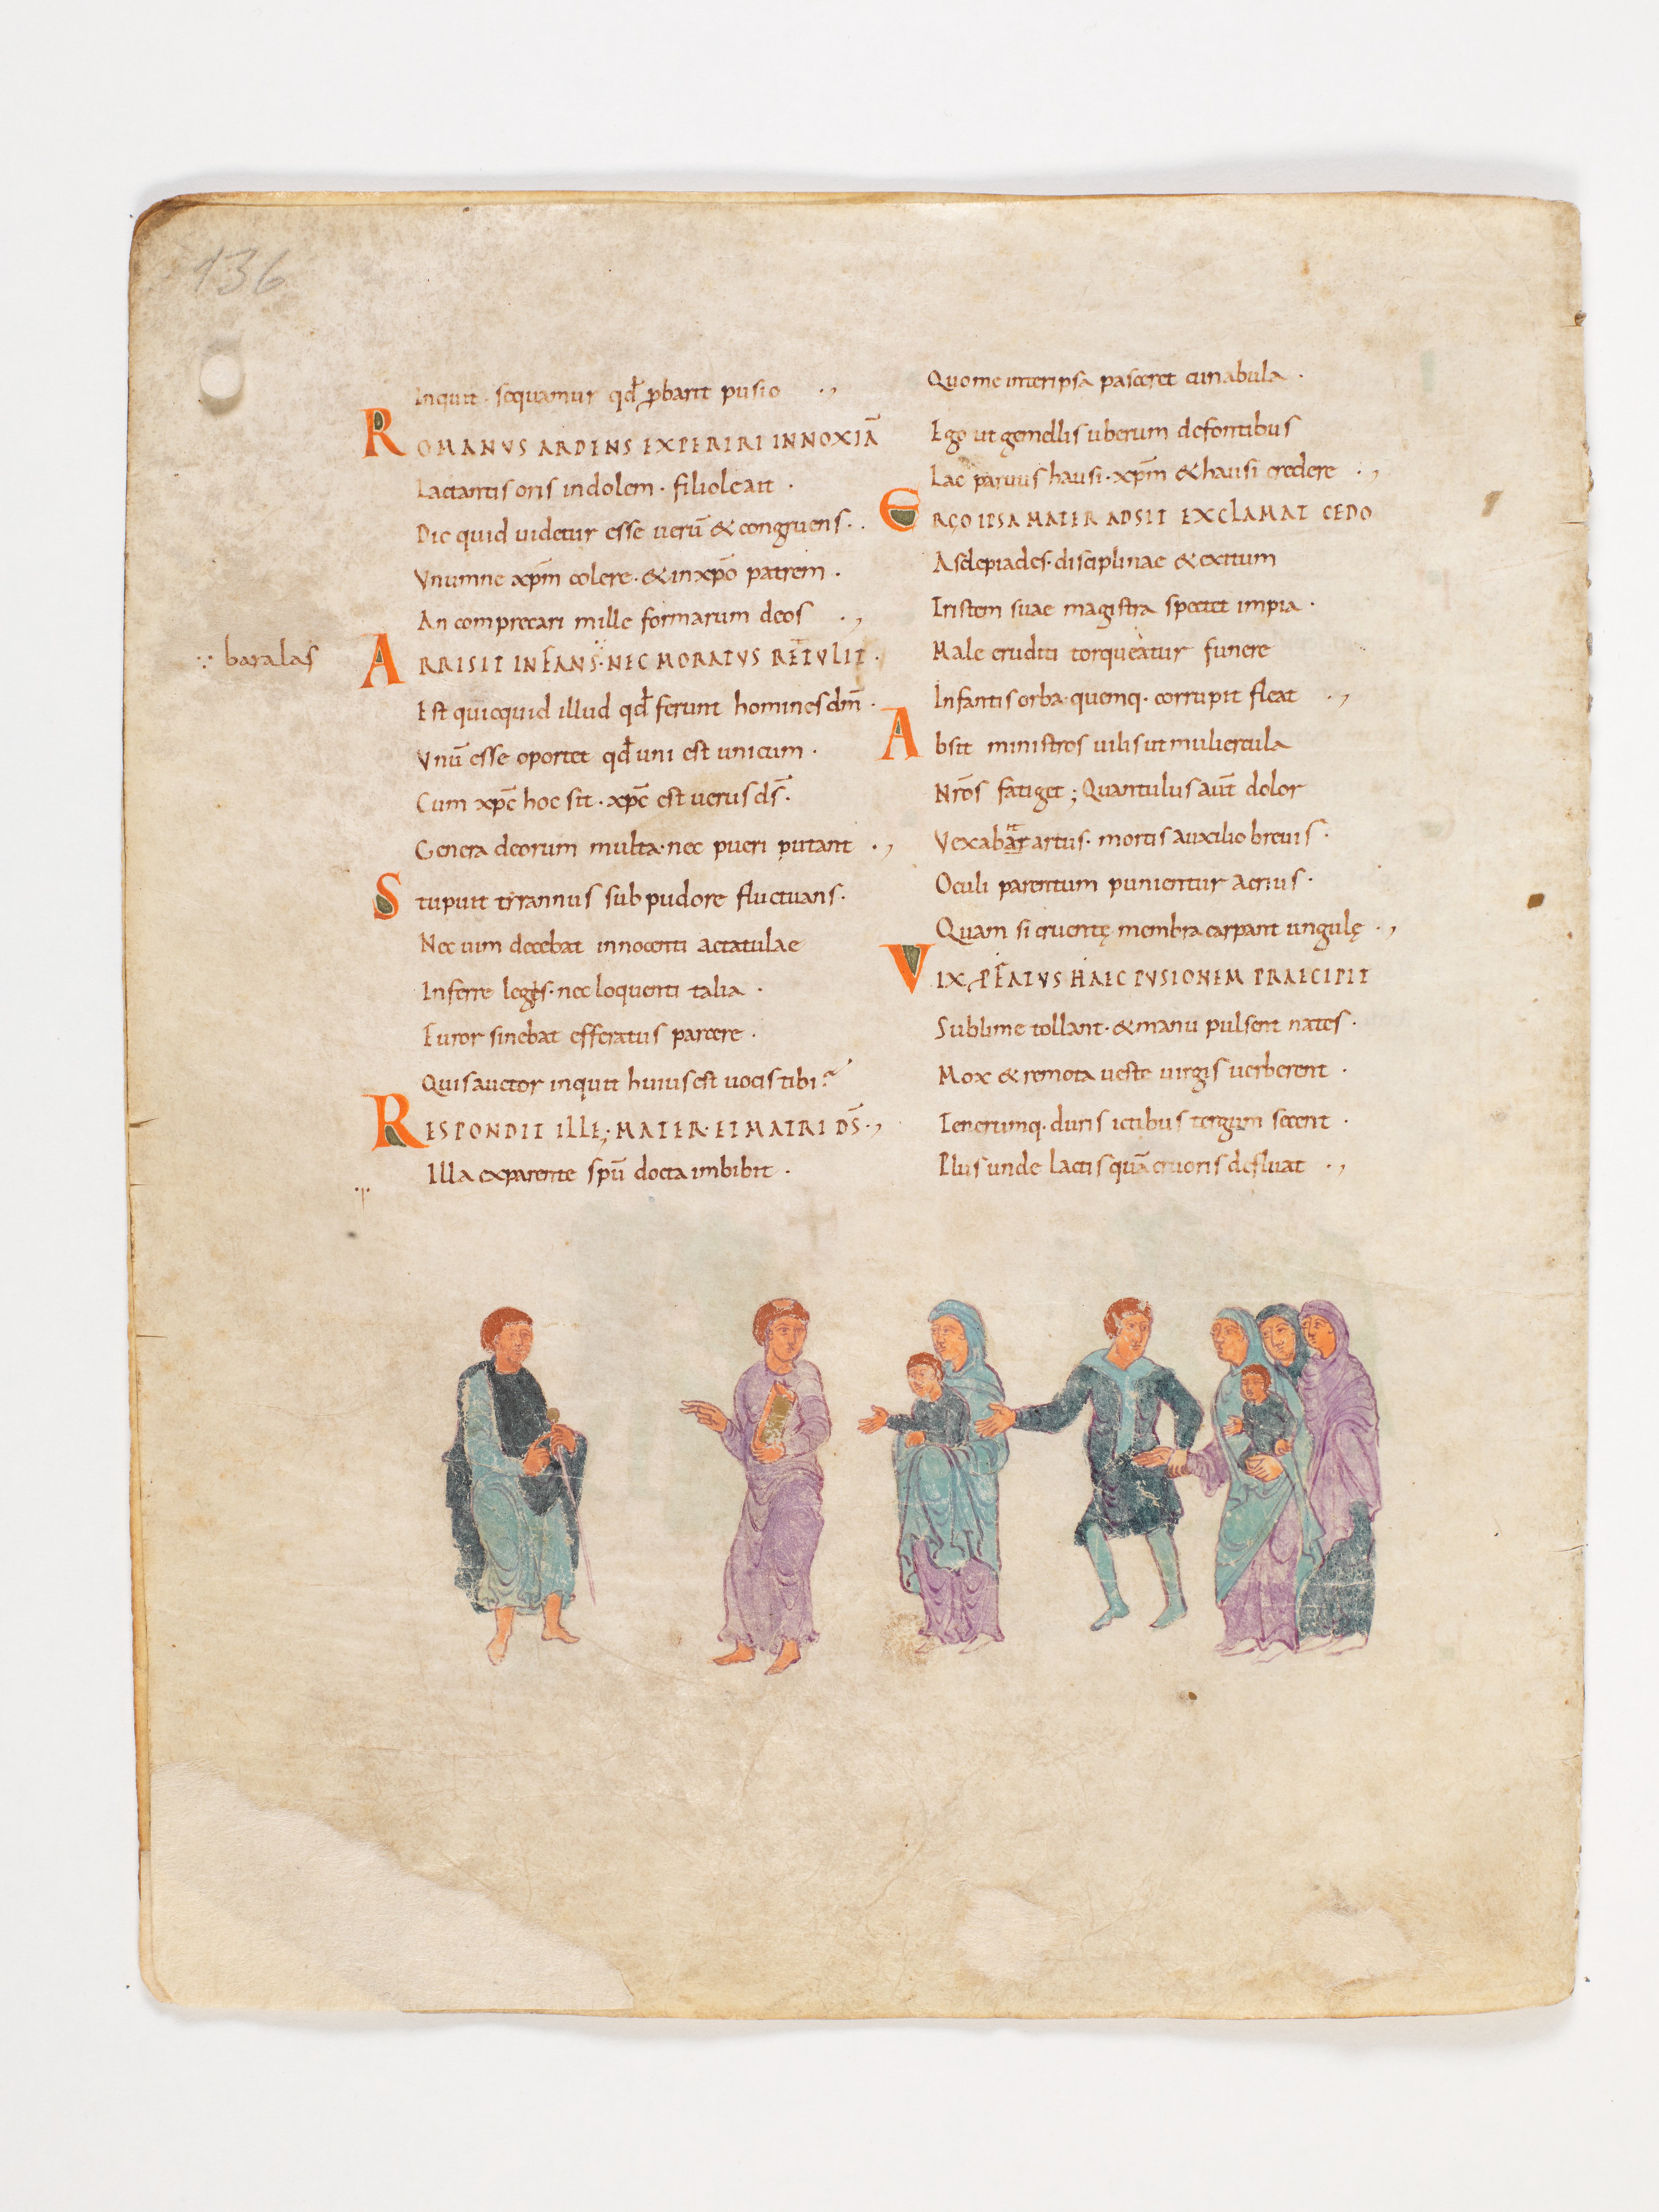 136
Inquit· sequamur qđ ꝓbarit pusio ·,
ROMANVS ARDENS EXPERIRI INNOXIĀ
Lactantis oris indolem· filiole ait ·
Dic quid uidetur esse uerū & congruens·.
Vnumne xp̄m colere·&in xp̄o patrem·
An comprecari mille formarum deos ·,
∵ baralas
ARRISIT INFANS·NEC MORATVS RETVLIT·
Est quicquid illud qđ ferunt homines dm̄·
Vnū esse oportet qđ uni est unicum·
Cum xp̄c hoc sit· xp̄c est uerus ds̄·
Genera deorum multa·nec pueri putant ·,
Stupuit tyrannus sub pudore fluctuans·
Nec uim decebat innocenti aetatulae
Inferre leges·nec loquenti talia·
Furor sinebat efferatus parcere·
Quis auctor inquit huius est uocis tibi?
RESPONDIT ILLE; MATER·ET MATRI DS̄·,
Illa exparente spū docta imbibit·
Quo me inter ipsa pasceret cunabula·
Ego ut gemellis uberum defontibus
Lac paruus hausi·xp̄m & hausi credere ·,
ERGO IPSA MATER ADSIT EXCLAMAT CEDO
Asclepiades·disciplinae & exitum
Tristem suae magistra spectet impia·
Male eruditi torqueatur funere
Infantis orba·quemq· corrupit fleat ·,
Absit ministros uilis ut muliercula
Nr̄os fatiget; Quantulus aut̄ dolor
Vexabit artus· mortis auxilio breuis·
Oculi parentum punientur acrius·
Quam si cruentę membra carpant ungulę ·,
VIX PFATVS HAEC PVSIONEM PRAECIPIT
Sublime tollant·&manu pulsent nates·
Mox & remota ueste uirgis uerberent·
Tenerumq· duris ictibus tergum secent·
Plus unde lactis quā cruoris defluat ·,